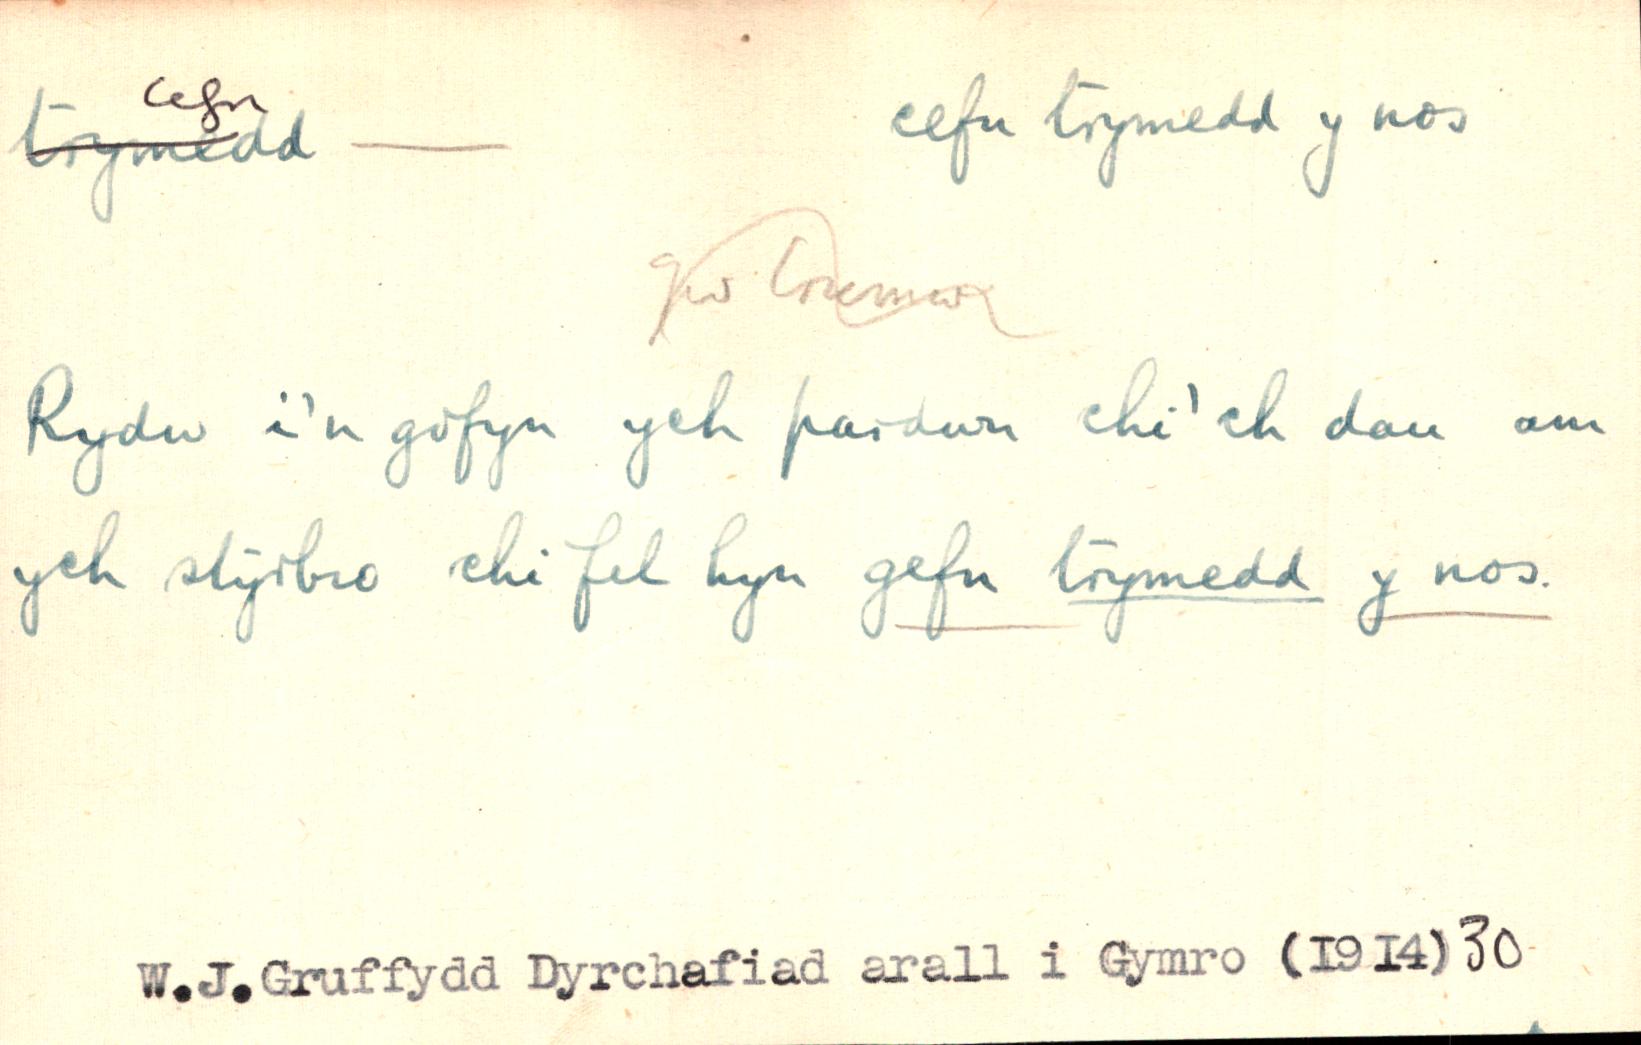 cefn
trymedd —— cefn trymedd y nos
gw
Rydw i'n gofyn ych pardwn chi'ch dau am
ych styrbio chi fel hyn gefn trymedd y nos.
W.J.Gruffydd Dyrchafiad arall i Gymro (1914) 30